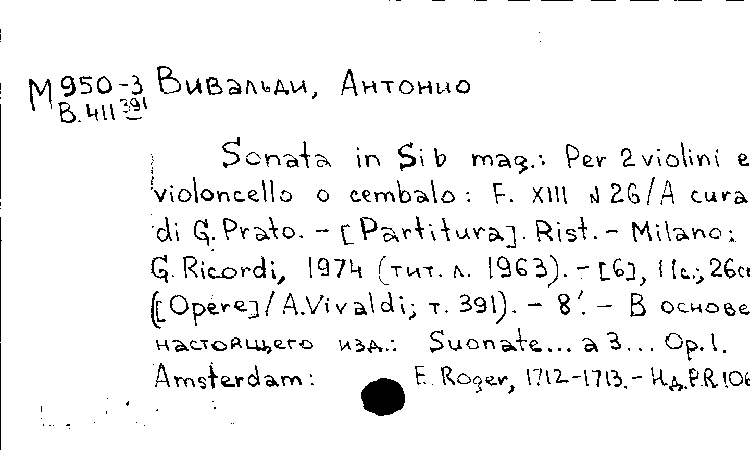 М 950-3 Вивальди, Антонио
В.411 391
Sonata in Si b mag.: Per 2 violini e
violoncello o cembalo: F. XIII N 26/A cura
di G. Prato. - [Partitura]. Rist. - Milano:
G. Ricordi, 1974 (тит. л. 1963). - [6], 11с.; 26см
([Opere]/A.Vivaldi; т. 391). - 8'. - В основе
настоящего изд.: Suonate... a 3... Op.1.
Amsterdam: E. Roger, 1712-1713. - Н.д. P.R.106